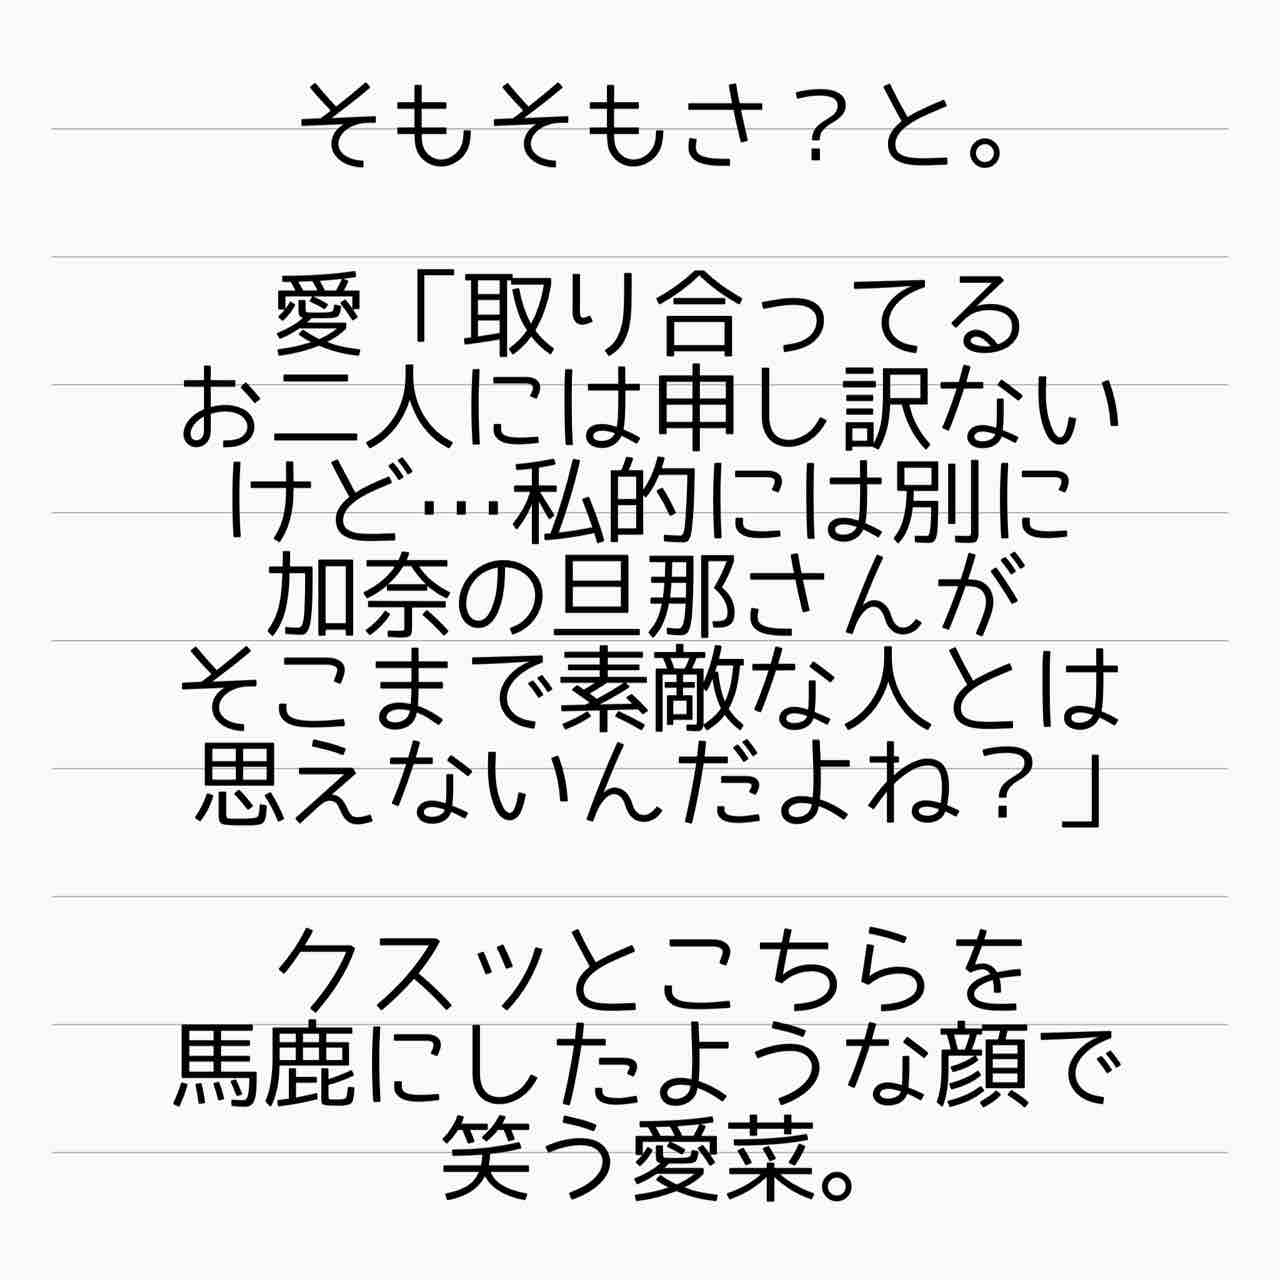 そもそもさ？と。
愛「取り合ってる
お二人には申し訳ない
けど…私的には別に
加奈の旦那さんが
そこまで素敵な人とは
思えないんだよね？」
クスッとこちらを
馬鹿にしたような顔で
笑う愛菜。